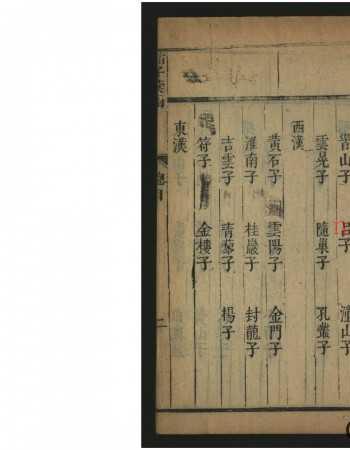 山子 呂子 潼山子
雲晃子 隨巢子 孔叢子
西漢
黃石子 雲陽子 金門子
淮南子 桂巖子 封龍子
吉雲子 青藜子 楊子
符子 金樓子
東漢
總目 二